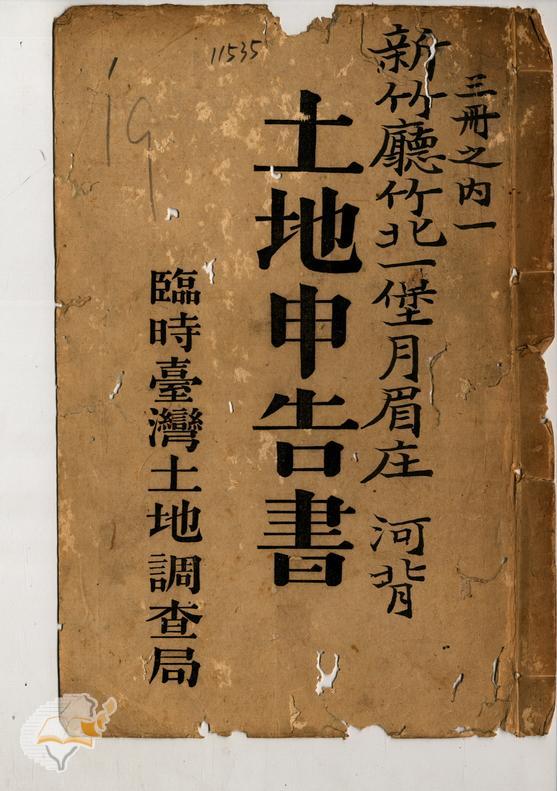 三冊之内一
新竹廳竹北一堡月眉庄 河背
土地申告書
臨時臺灣土地調查局
11535
19